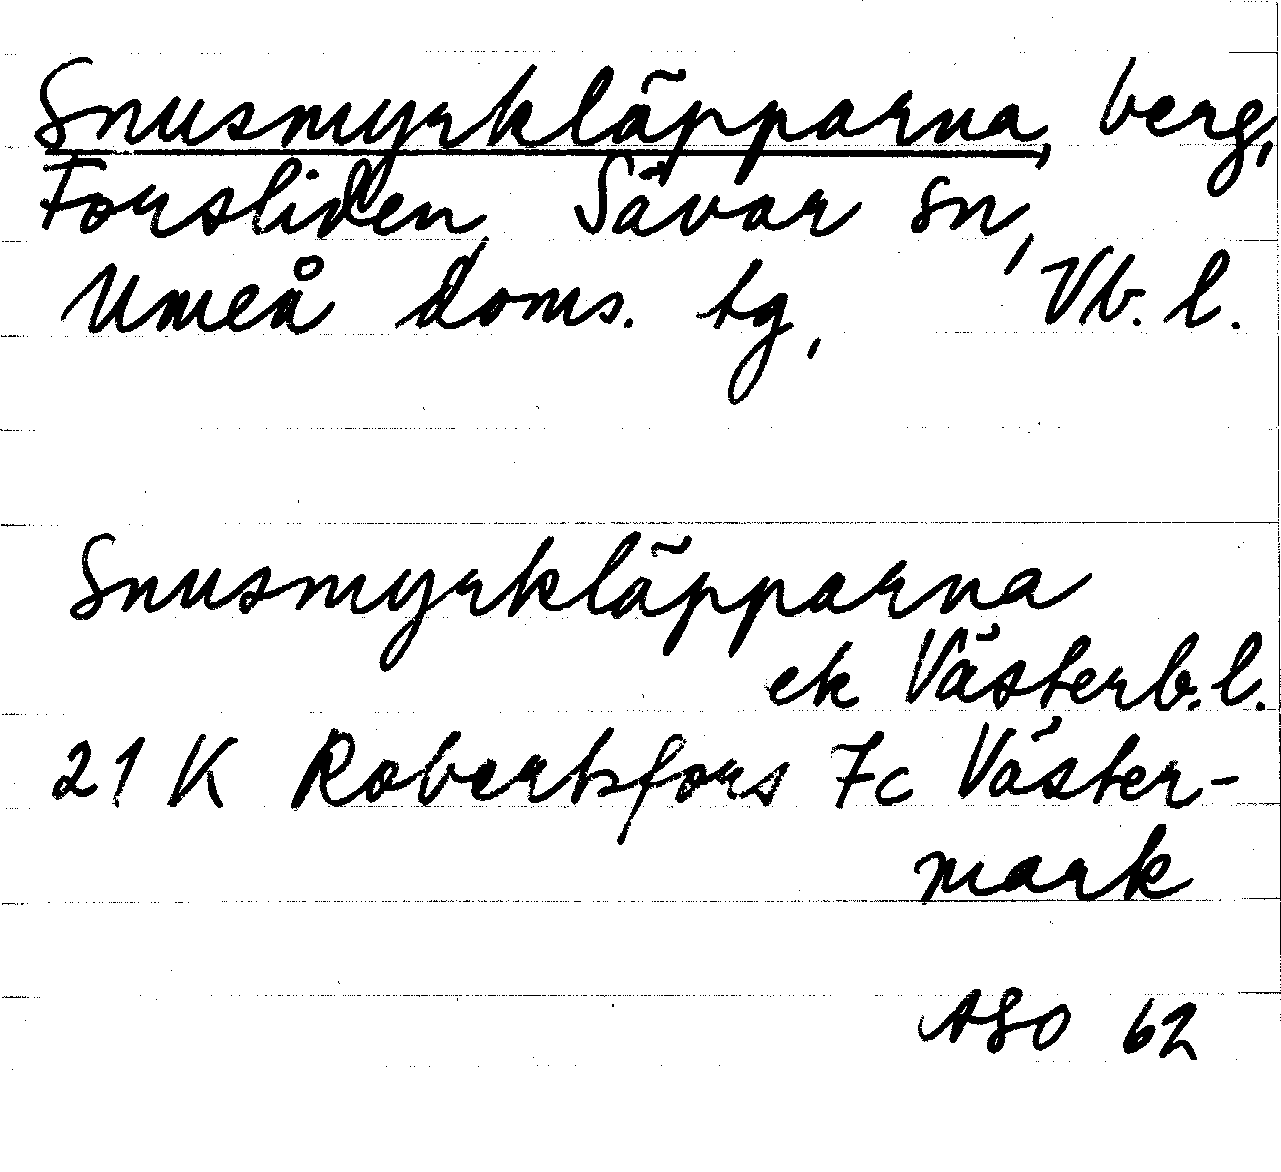 Snusmyrkläpparna, berg,
Forsliden, Sävar sn,
Umeå doms. tg, Vb. l.
Snusmyrkläpparna
ek Västerb. l.
21 K Robertsfors 7c Väster-
mark
ASO 62